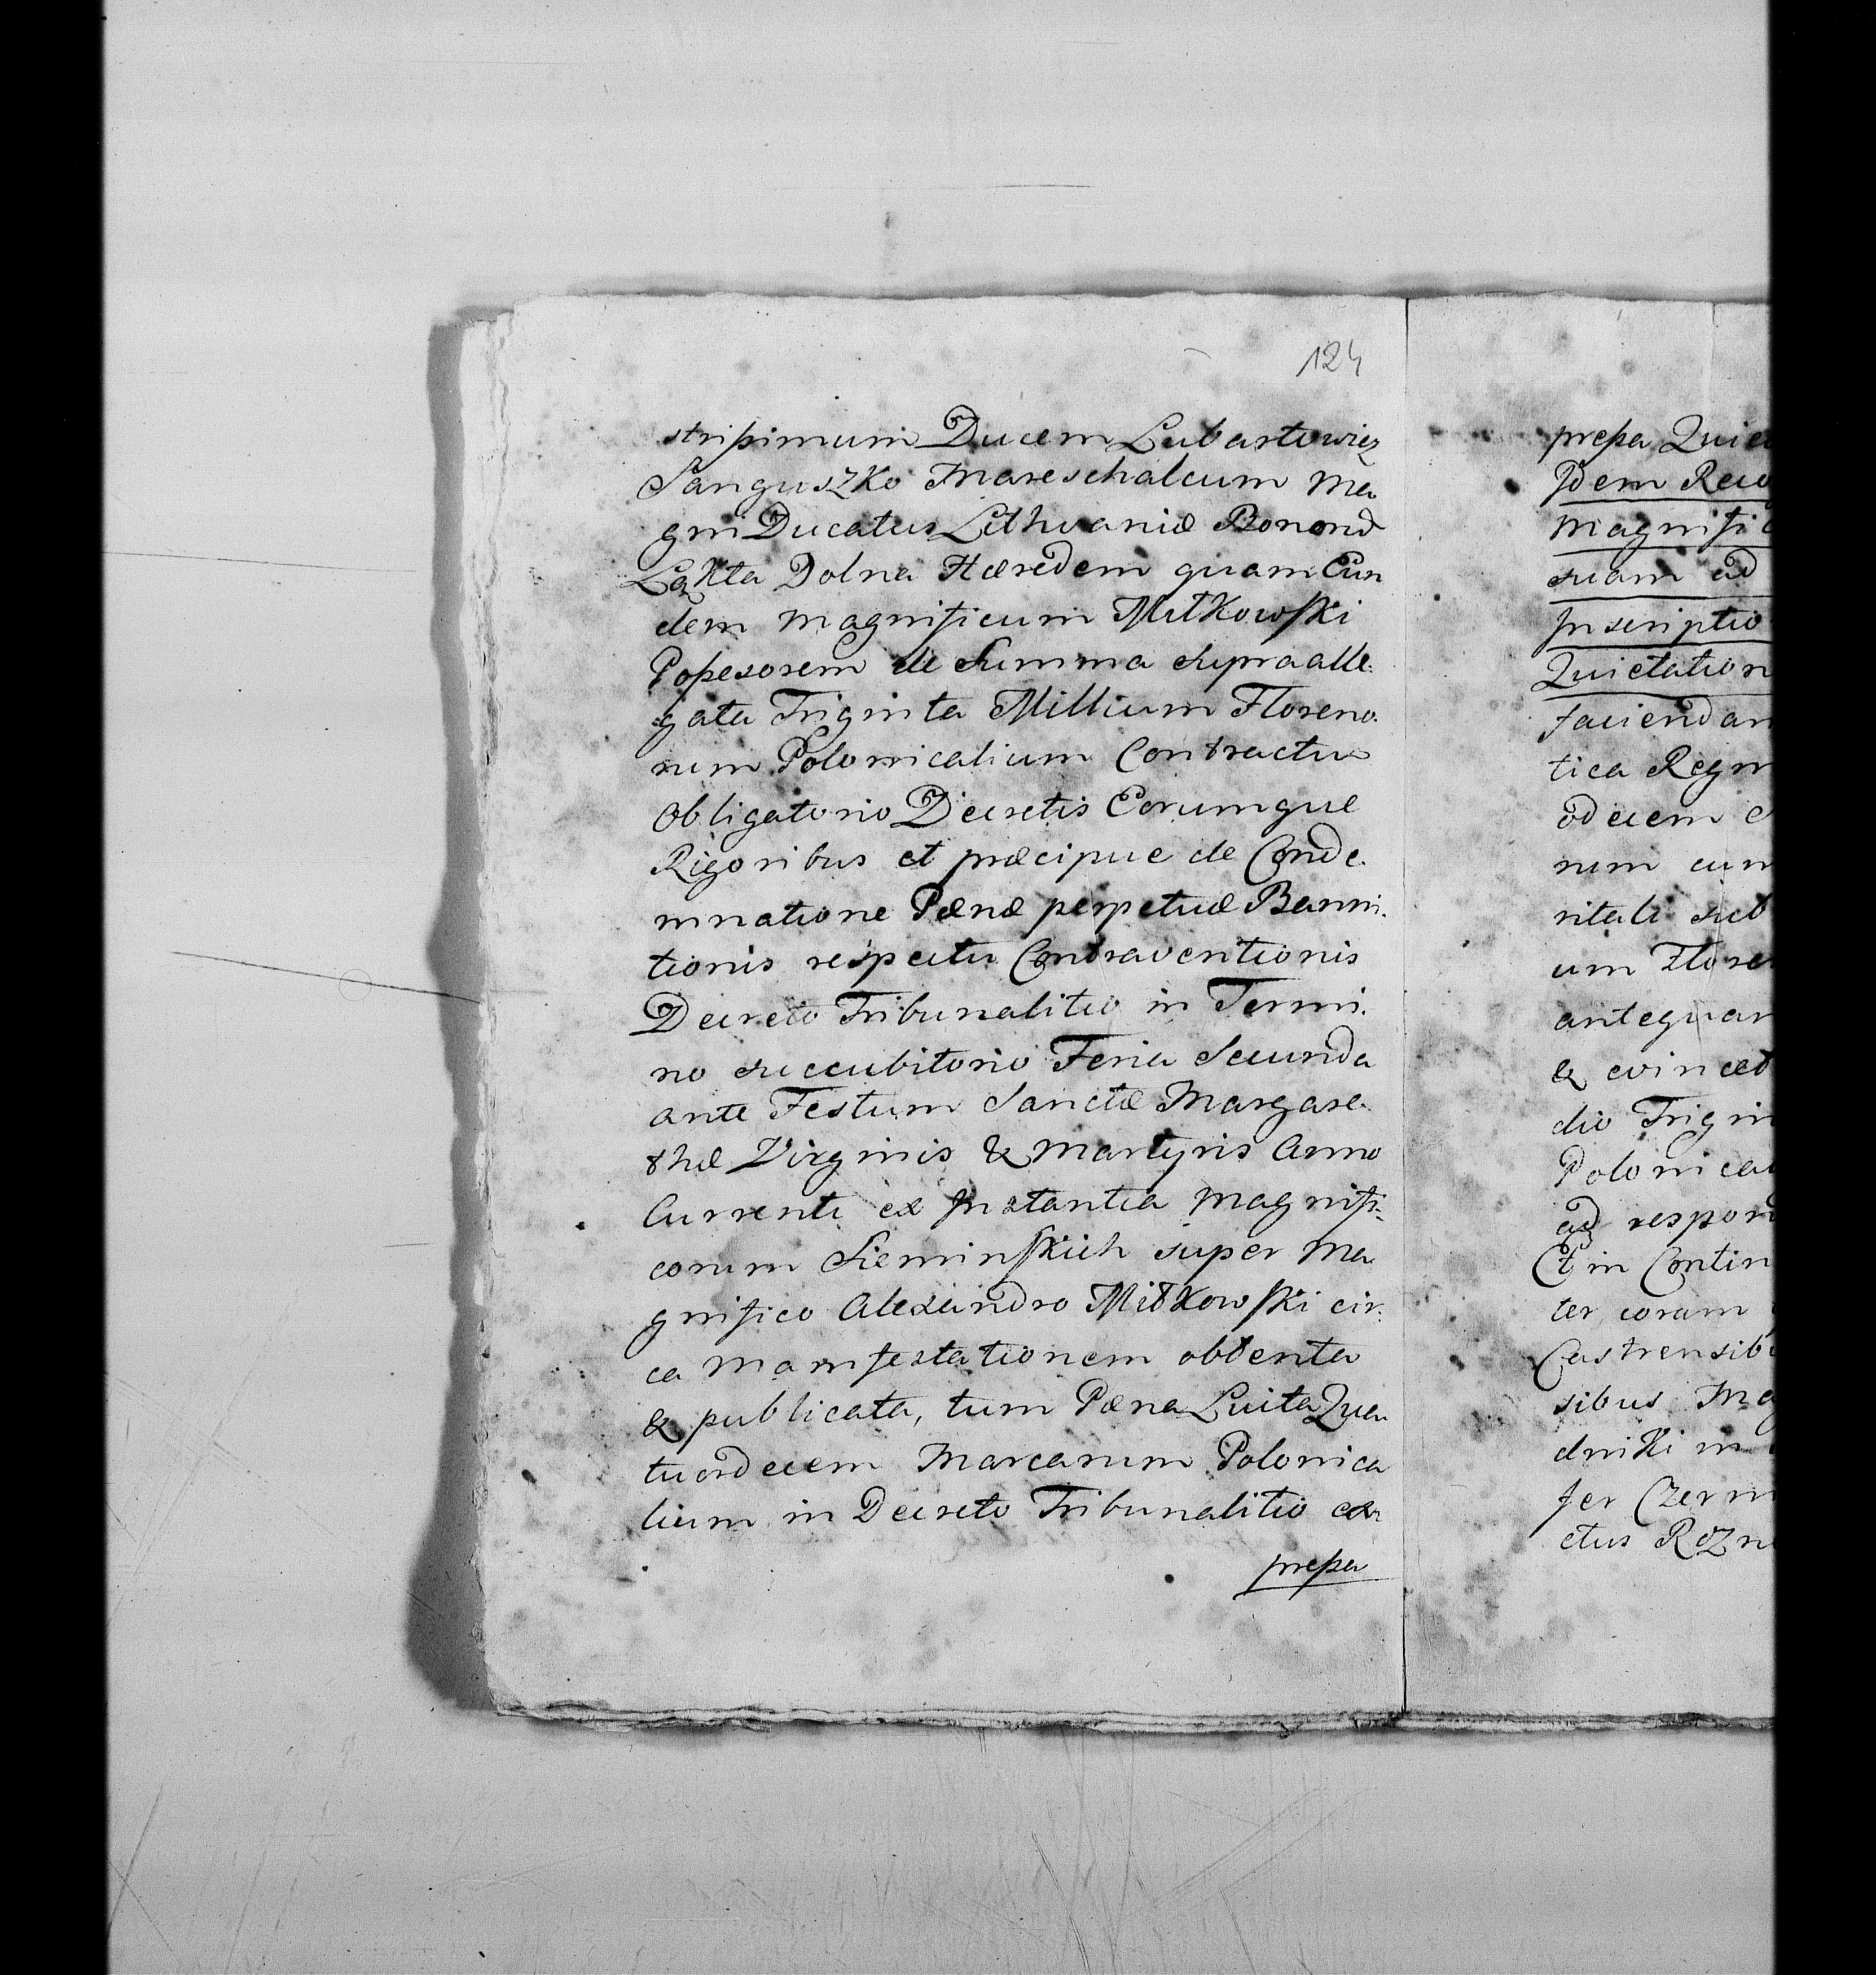 124
strissimum Ducem Lubartowicz
Sanguszko Mareschalcum Ma
gni Ducatus Lithvaniæ Bonord
Łąkta Dolna Hæredem quam Eun
dem Magnificum Miłkowski
Possesorem de Summa supraalle.
gata Triginta Millium Floreno.
rum Polonicalium Contractu
Obligatorio Decretis Eorumque
Rigoribus et præcipue de Conde.
mnatione Pænæ perpetuæ Banni.
tionis respectu Contraventionis
Decreto Tribunalitio in Termi.
no succubitorio Feria Secunda
ante Festum Sanctæ Margare.
thæ Virginis & Martyris Anno
Currenti ex Instantia Magnifi.
corum Sieminskich super Ma
gnifico Alexandro Miłkowski cir.
ca Manifestationem obtenta
& publicata, tum Pæna Luita Qua
tuordecem Marcarum Polonica
lium in Decreto Tribunalitio ex
pressa
pressa
Idem
Magnific
suam ad
Inscriptio
Quietation
faciendam
tica Regn
odecem
rum cum
ritali sub
um Flore
antequam
& evincet
dio Trigin
Polonical
ad respon
Et in Contin
ter, coram
Castrensib
sibus Mag
dniki
fer Czerm
ctus Rozn